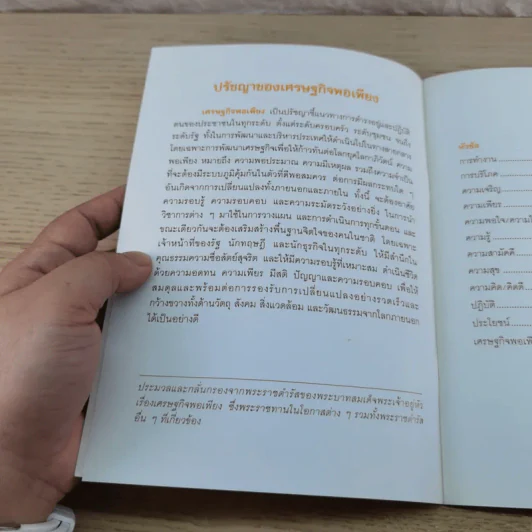 ปรัชญาของเศรษฐกิจพอเพียง
เศรษฐกิจพอเพียง เป็นปรัชญาชี้แนวทางการดำรงอยู่และปฏิบัติ
ตนของประชาชนในทุกระดับ ตั้งแต่ระดับครอบครัว ระดับชุมชน จนถึง
ระดับรัฐ ทั้งในการพัฒนาและบริหารประเทศให้ดำเนินไปในทางสายกลาง
โดยเฉพาะการพัฒนาเศรษฐกิจเพื่อให้ก้าวทันต่อโลกยุคโลกาภิวัตน์ ความ
พอเพียง หมายถึง ความพอประมาณ ความมีเหตุผล รวมถึงความจำเป็น
ที่จะต้องมีระบบภูมิคุ้มกันในตัวที่ดีพอสมควร ต่อการมีผลกระทบใด ๆ
อันเกิดจากการเปลี่ยนแปลงทั้งภายนอกและภายใน ทั้งนี้ จะต้องอาศัย
ความรอบรู้ ความรอบคอบ และความระมัดระวังอย่างยิ่ง ในการนำ
วิชาการต่าง ๆ มาใช้ในการวางแผน และการดำเนินการทุกขั้นตอน และ
ขณะเดียวกันจะต้องเสริมสร้างพื้นฐานจิตใจของคนในชาติ โดยเฉพาะ
เจ้าหน้าที่ของรัฐ นักทฤษฎี และนักธุรกิจในทุกระดับ ให้มีสำนึกใน
คุณธรรมความซื่อสัตย์สุจริต และให้มีความรอบรู้ที่เหมาะสม ดำเนินชีวิต
ด้วยความอดทน ความเพียร มีสติ ปัญญาและความรอบคอบ เพื่อให้
สมดุลและพร้อมต่อการรองรับการเปลี่ยนแปลงอย่างรวดเร็วและ
กว้างขวางทั้งด้านวัตถุ สังคม สิ่งแวดล้อม และวัฒนธรรมจากโลกภายนอก
ได้เป็นอย่างดี
ประมวลและกลั่นกรองจากพระราชดำรัสของพระบาทสมเด็จพระเจ้าอยู่หัว
เรื่องเศรษฐกิจพอเพียง ซึ่งพระราชทานในโอกาสต่าง ๆ รวมทั้งพระราชดำรัส
อื่น ๆ ที่เกี่ยวข้อง
หัวข้อ
การทำงาน
การบริโภค
ความเจริญ
ความเพียร
ความพอใจ/ความ
ความรู้
ความสามัคคี
ความสุข
ความคิด/คิดดี
ปฏิบัติ
ประโยชน์
เศรษฐกิจพอเพี